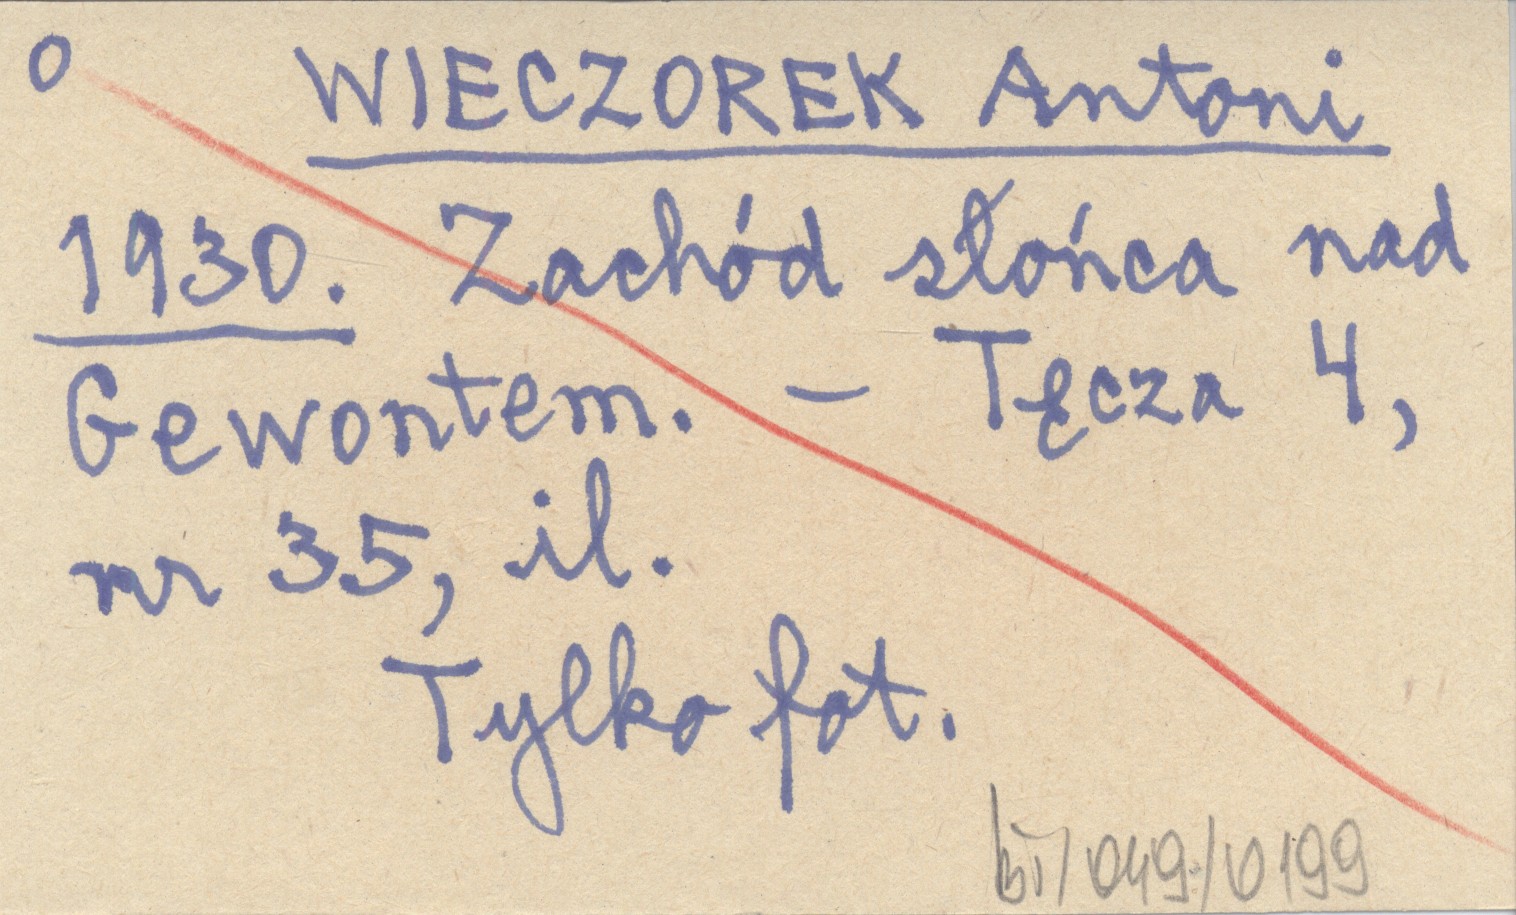 O WIECZOREK Antoni
1930. Zachód słońca nad
Gewontem. – Tęcza 4,
nr 35, il.
Tylko fot.
/049/0199